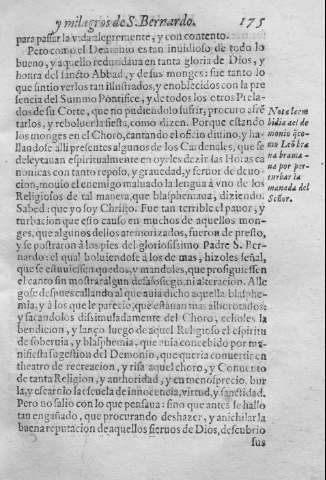 y milagros de S. Bernardo. 175
para passar la vida alegremente, y con contento.
Pero como el Demonio es tan inuidioso de todo lo
bueno, y aquello redundaua en tanta gloria de Dios, y
honra del sancto Abbad, y de sus monges: fue tanto lo
que sintio verlos tan illustrados, y enoblecidos con la pre
sencia del Summo Pontifice, y de todos los otros Prela-
dos de su Corte, que no pudiendolo sufrir, procuro assé
tarlos, y reboluer la fiesta, como dizen. Porque estando
los monges en el Choro, cantando el officio diuino, y ha
llandose alli presentes algunos de los Cardenales, que se
deleytauan espiritualmente en oyrles dezir las Horas ca
nonicas con tanto repolo, y grauedad, y feruor de deuo-
cion, mouio el enemigo maluado la lengua à vno de los
Religiosos de tal manera, que blasphemaua, diziendo.
Sabed: que yo soy Christo. Fue tan terrible el pauor, y
turbacion que esto causo en muchos de aquellos mon-
ges, que algunos dellos atemorizados, fueron de presto,
y se postraron à los pies del gloriosissimo Padre S. Ber-
nardo: el qual boluiendose à los de mas, hizoles señal,
que se estuuiessen quedos, y mandoles, que prosiguiessen
el canto sin mostrar algun desassossiego, ni alteracion. Alle
gose despues callando al que auia dicho aquella blasphe-
mia, y à los que le parecio, que estauan mas alborotados:
y sacandolos dissimuladamente del Choro, echoles la
bendicion, y lanço luego de aquel Religioso el espiritu
de soberuia, y blasphemia, que auia concebido por ma-
nifiesta sugestion del Demonio, que queria conuertir en
theatro de recreacion, y risa aquel choro, y Conuento
de tanta Religion, y authoridad, y en menosprecio, bur
la, y escarnio la escuela de innocencia, virtud, y sanctidad.
Pero no salio con lo que pensaua: sino que antes se hallo
tan engañado, que procurando deshazer, y anichilar la
buena reputacion de aquellos sieruos de Dios, descubrio
sus
Nota la em
bidia del de
monio q̃ co-
mo Leõ bra
na brama-
ua por per-
turbar la
manada del
Señor.